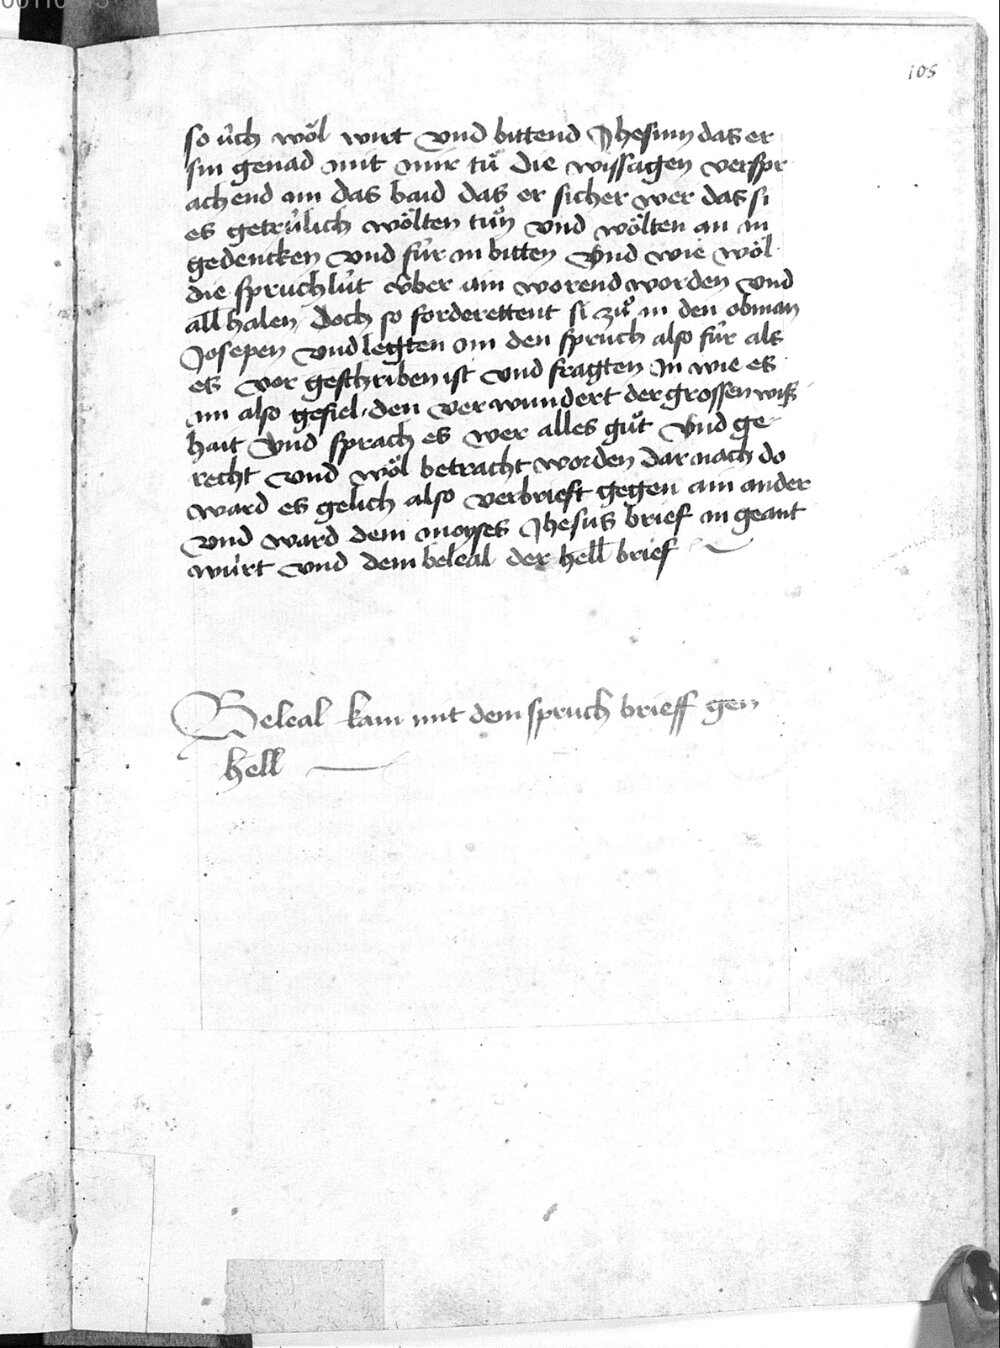 105
so u̍ch wo̊l wirt vnd bittend Jhesum das er
sin genad mit mir tu̍ die wissagen verspr
achend im das baid das er sicher wer das si
es getru̍lich wo̍lten tu̍n vnd wo̍lten an in
gedencken vnd fu̍r in bitten Vnd wie wo̍l
die spruchlu̍t u̍ber ain worend worden vnd
all halen / doch so forderettent si zů in den obman
Josepen vnd legten im den spruch also fu̍r als
es vor geschriben ist vnd fragten In wie es
im also gefiel / den verwundert der grossen wiß
hait Vnd sprach es wer alles gu̍t Vnd ge
recht vnd wo̍l betracht worden dar nach do
ward es gelich also verbrieft gegen ain ander
vnd ward dem moyses Jhesus brief in geant
wu̍rt vnd dem beleal der hell brief
Beleal kam mit dem spruch brieff gen
hell